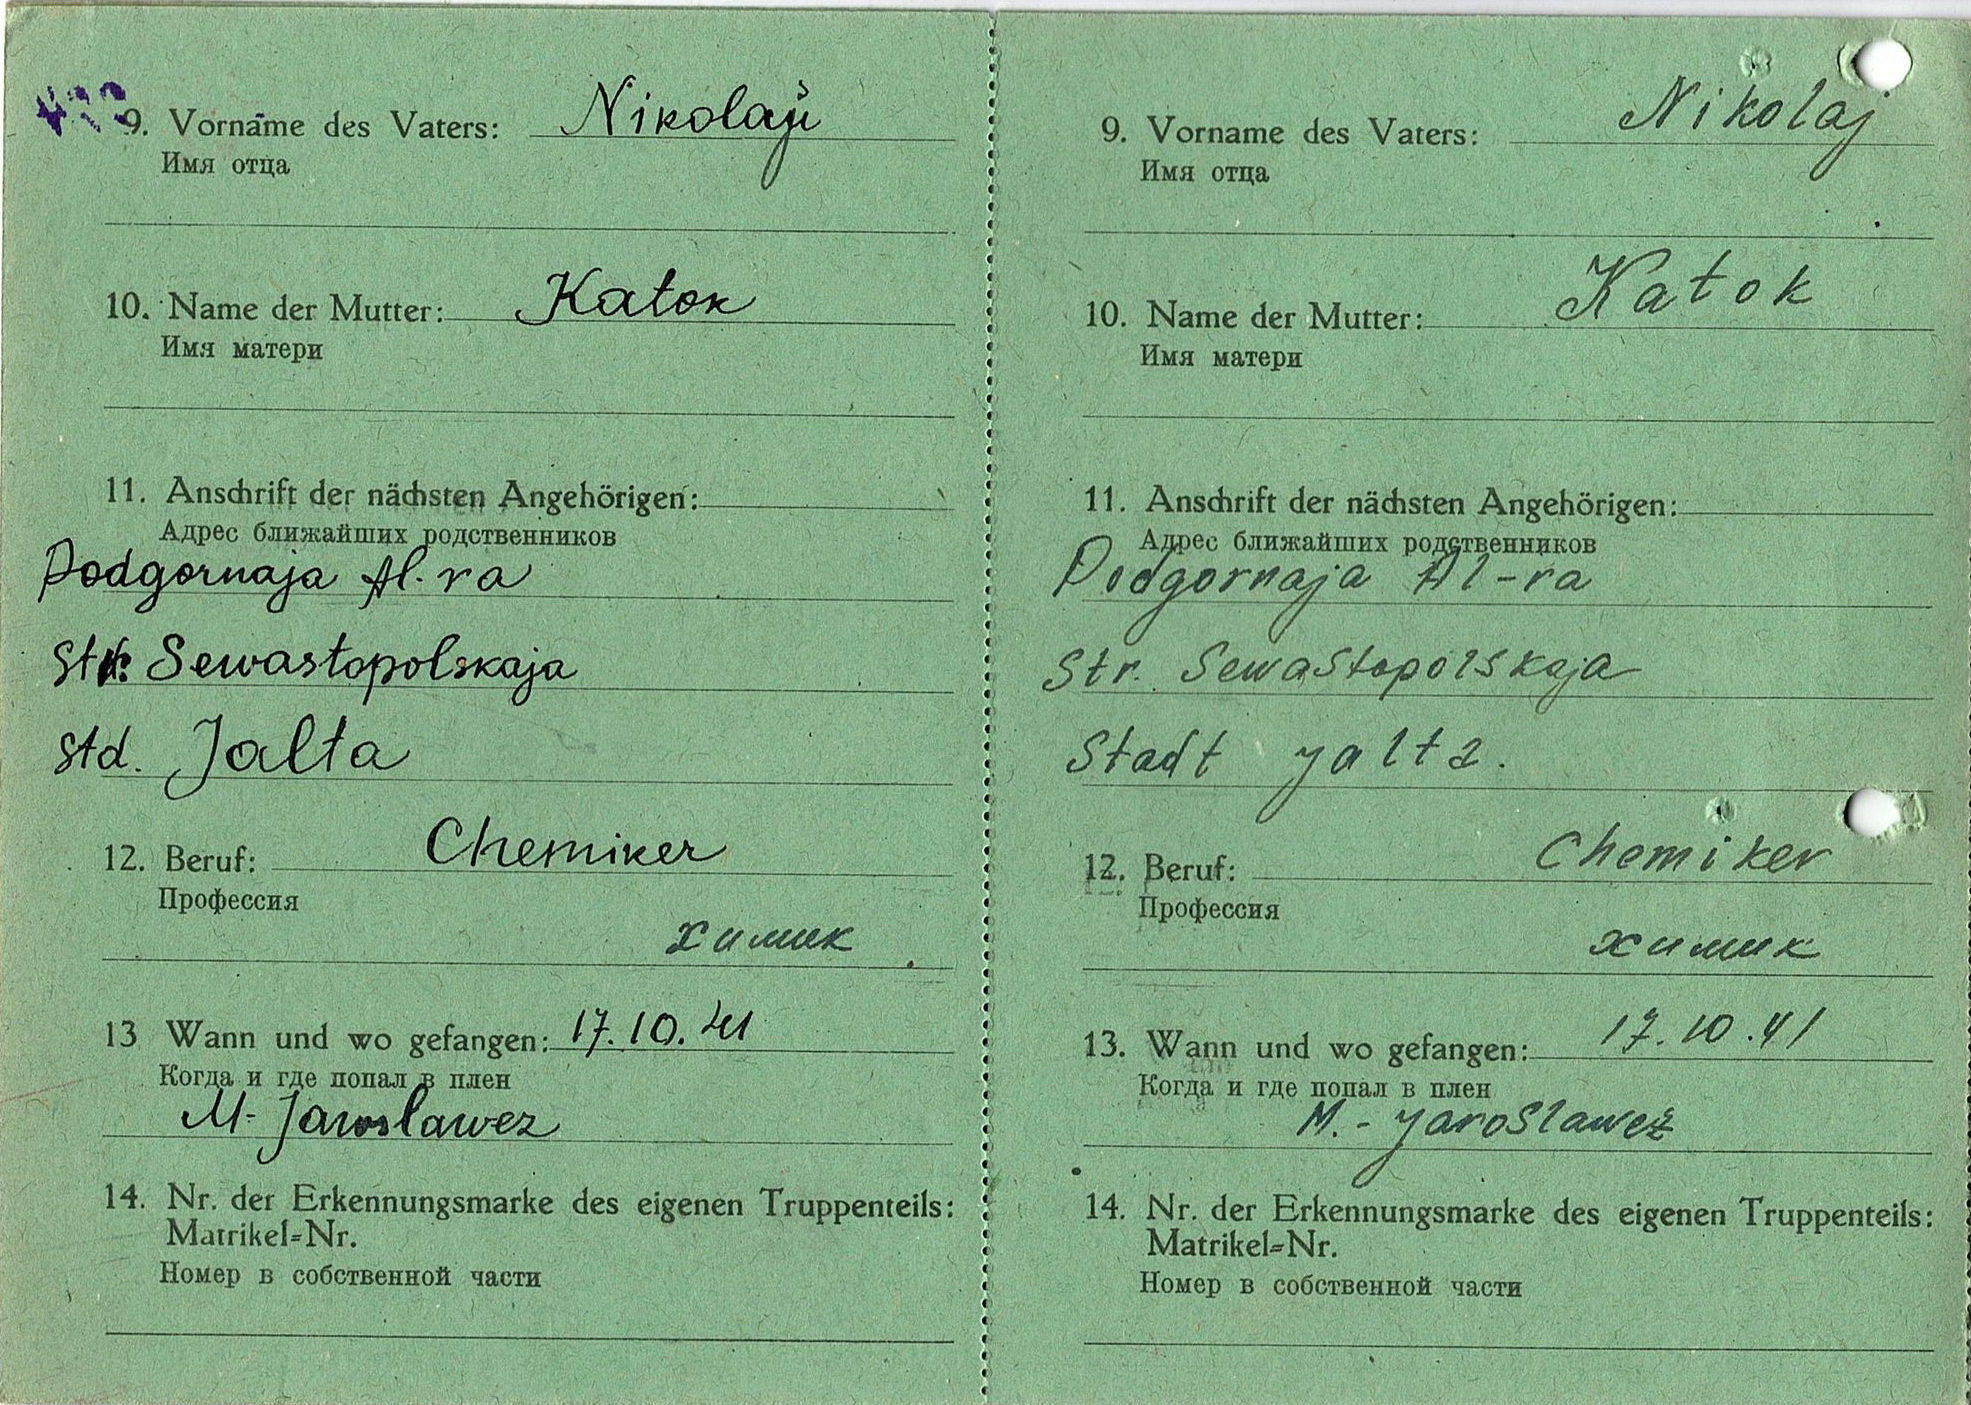 9. Vorname des Vaters: Nikolaj
Имя отца
10. Name der Mutter: Katok
Имя матери
11. Anschrift der nächsten Angehörigen:
Адрес ближайших родственников
Podgornaja Al-ra
Str. Sewastopolskaja
Std. Jalta
12. Beruf: Chemiker
Профессия
химик
13 Wann und wo gefangen: 17.10.41
Когда и где попал в плен
M-Jaroslawez
14. Nr. der Erkennungsmarke des eigenen Truppenteils:
Matrikel=Nr.
Номер в собственной части
9. Vorname des Vaters: Nikolaj
Имя отца
10. Name der Mutter: Katok
Имя матери
11. Anschrift der nächsten Angehörigen:
Адрес ближайших родственников
Podgornaja Al-ra
Str. Sewastopolskaja
Stadt Yalta.
12. Beruf: Chemiker
Профессия
химик
13. Wann und wo gefangen: 17.10.41
Когда и где попал в плен
M.-Jaroslawez
14. Nr. der Erkennungsmarke des eigenen Truppenteils:
Matrikel=Nr.
Номер в собственной части